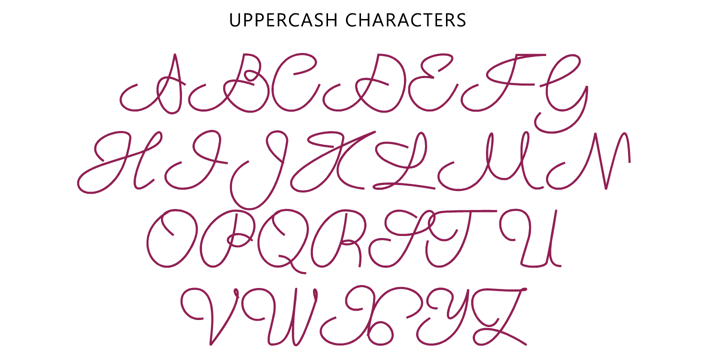 UPPERCASH CHARACTERS
A B C D E F G
H I J K L M N
O P Q R S T U
V W X Y Z